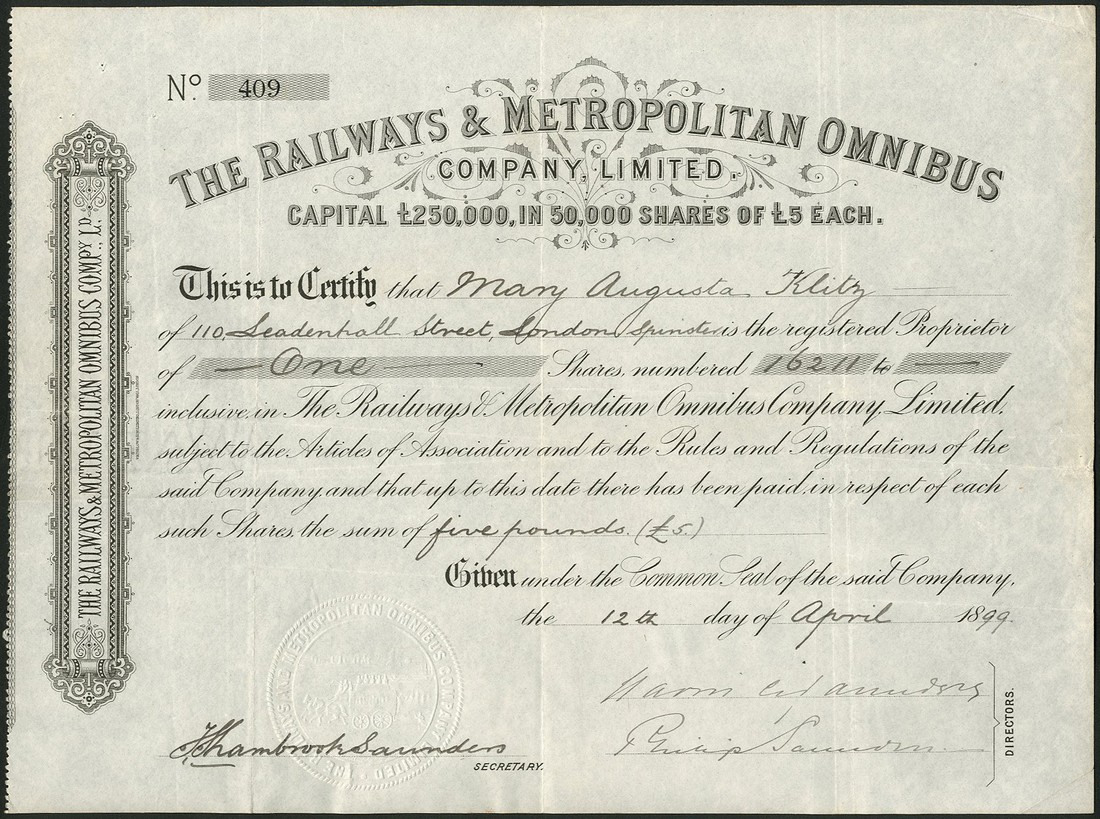 No. 409
THE RAILWAYS & METROPOLITAN OMNIBUS
COMPANY, LIMITED.
CAPITAL £250,000, IN 50,000 SHARES OF £5 EACH.
THE RAILWAYS & METROPOLITAN OMNIBUS COMPY., LD.
This is to Certify that Mary Augusta Klitz
of 110, Leadenhall Street, London Spinster is the registered Proprietor
of One Shares, numbered 16211 to
inclusive, in The Railways & Metropolitan Omnibus Company, Limited,
subject to the Articles of Association and to the Rules and Regulations of the
said Company, and that up to this date there has been paid, in respect of each
such Shares, the sum of five pounds. (£5.)
Given under the Common Seal of the said Company,
the 12th day of April 1899.
THE RAILWAYS AND METROPOLITAN OMNIBUS COMPANY LIMITED
Philip Saunders
DIRECTORS.
Shambrook Saunders
SECRETARY.